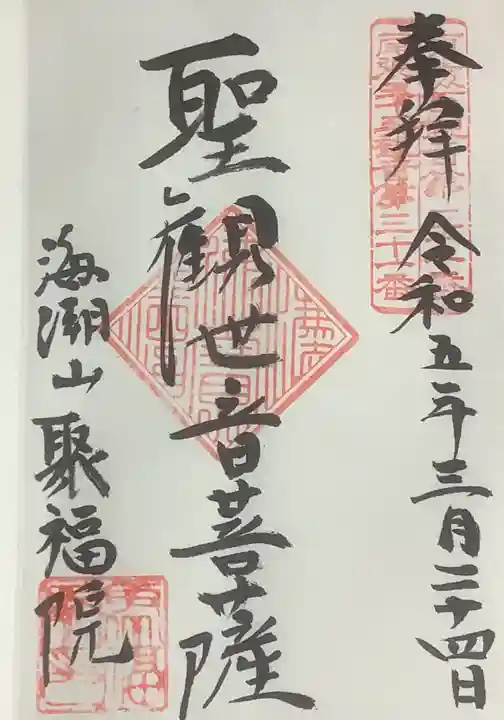 奉拜 令和五年三月二十四日
聖観世音菩薩
海潮山 聚福院